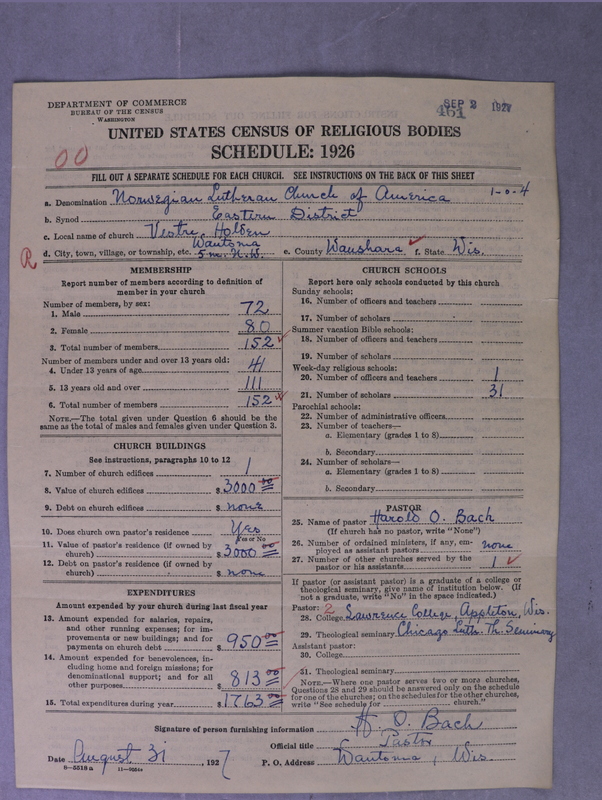 DEPARTMENT OF COMMERCE
BUREAU OF THE CENSUS
WASHINGTON
SEP 2 1927
461
UNITED STATES CENSUS OF RELIGIOUS BODIES
SCHEDULE: 1926
00
FILL OUT A SEPARATE SCHEDULE FOR EACH CHURCH. SEE INSTRUCTIONS ON THE BACK OF THIS SHEET
a. Denomination Norwegian Lutheran Church of America 1-0-4
b. Synod Eastern District
c. Local name of church Vestre Holden
R
d. City, town, village, or township, etc. Wautoma 5 m. N.W. e. County Waushara f. State Wis.
MEMBERSHIP
Report number of members according to definition of
member in your church
Number of members, by sex:
1. Male 72
2. Female 80
3. Total number of members 152
Number of members under and over 13 years old:
4. Under 13 years of age 41
5. 13 years old and over 111
6. Total number of members 152
NOTE.—The total given under Question 6 should be the
same as the total of males and females given under Question 3.
CHURCH BUILDINGS
See instructions, paragraphs 10 to 12
7. Number of church edifices 1
8. Value of church edifices $ 3000 00
9. Debt on church edifices $ none
10. Does church own pastor's residence Yes
Yes or No
11. Value of pastor's residence (if owned by
church) $ 3000 00
12. Debt on pastor's residence (if owned by
church) $ none
EXPENDITURES
Amount expended by your church during last fiscal year
13. Amount expended for salaries, repairs,
and other running expenses; for im-
provements or new buildings; and for
payments on church debt $ 950 00
14. Amount expended for benevolences, in-
cluding home and foreign missions; for
denominational support; and for all
other purposes $ 813 00
15. Total expenditures during year $ 1763 00
CHURCH SCHOOLS
Report here only schools conducted by this church
Sunday schools:
16. Number of officers and teachers
17. Number of scholars
Summer vacation Bible schools:
18. Number of officers and teachers
19. Number of scholars
Week-day religious schools:
20. Number of officers and teachers 1
21. Number of scholars 31
Parochial schools:
22. Number of administrative officers
23. Number of teachers—
a. Elementary (grades 1 to 8)
b. Secondary
24. Number of scholars—
a. Elementary (grades 1 to 8)
b. Secondary
PASTOR
25. Name of pastor Harold O. Bach
(If church has no pastor, write "None")
26. Number of ordained ministers, if any, em-
ployed as assistant pastors none
27. Number of other churches served by the
pastor or his assistants 1
If pastor (or assistant pastor) is a graduate of a college or
theological seminary, give name of institution below. (If
not a graduate, write "No" in the space indicated.)
Pastor: 2
28. College Lawrence College, Appleton, Wis.
29. Theological seminary Chicago Luth. Th. Seminary
Assistant pastor:
30. College
31. Theological seminary
NOTE.—Where one pastor serves two or more churches,
Questions 28 and 29 should be answered only on the schedule
for one of the churches; on the schedules for the other churches,
write "See schedule for church."
Signature of person furnishing information H O. Bach
Official title Pastor
Date August 31, 1927 P. O. Address Wautoma, Wis.
8-5518 a